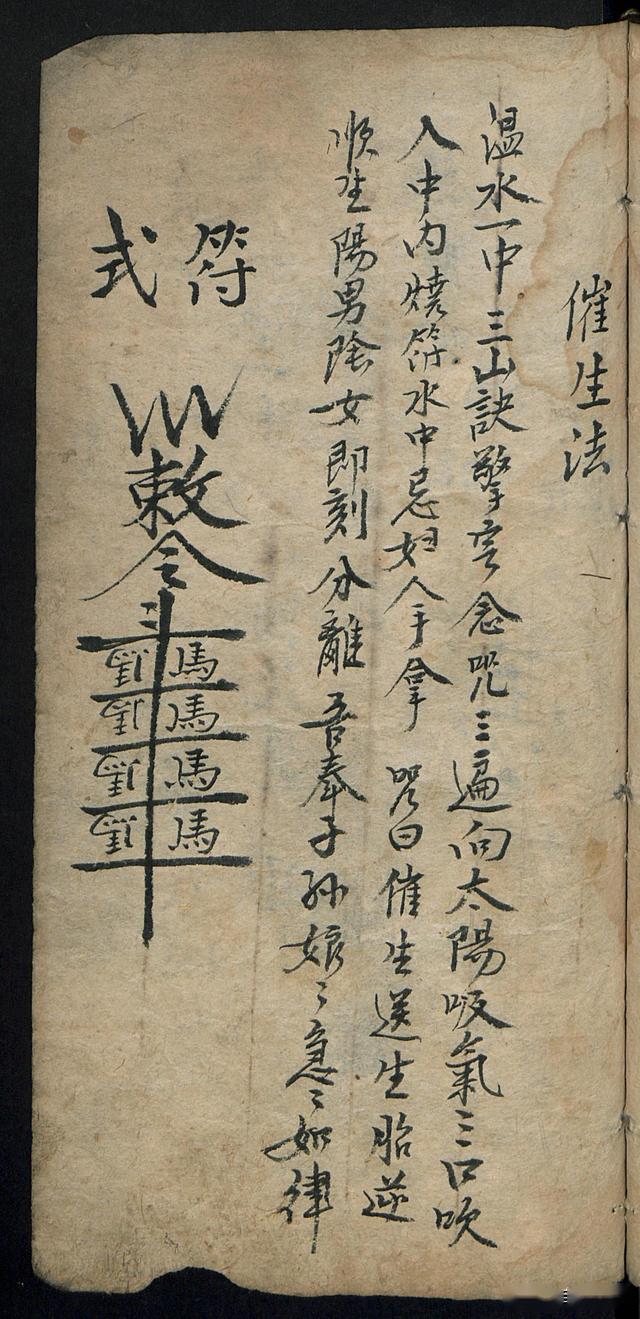 催生法
温水一中三山訣擎空念呪三遍向太陽吸氣三口吹
入中内燒符水中忌妇人手拿 呪曰催生送生胎逆
順生陽男陰女即刻分離 吾奉子孫娘々急々如律
符式
敕令
斗
馬
馬
馬
馬